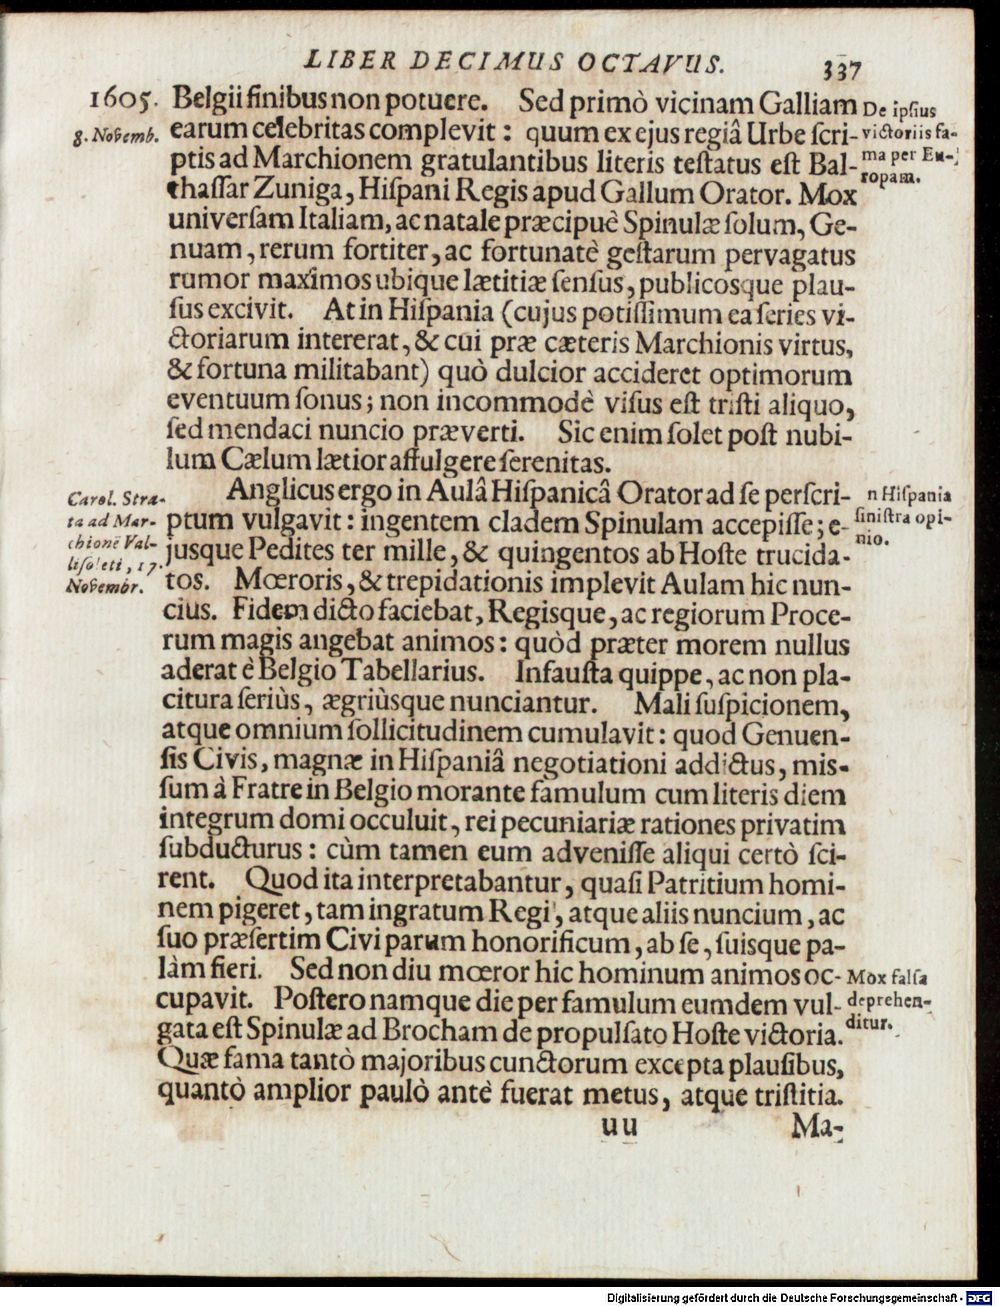 LIBER DECIMUS OCTAVUS.
337
1605.
8. Novemb.
Belgii finibus non potuere. Sed primò vicinam Galliam
earum celebritas complevit: quum ex ejus regiâ Urbe ſcri-
ptis ad Marchionem gratulantibus literis teſtatus eſt Bal-
thaſſar Zuniga, Hiſpani Regis apud Gallum Orator. Mox
univerſam Italiam, ac natale præcipuè Spinulæ ſolum, Ge-
nuam, rerum fortiter, ac fortunatè geſtarum pervagatus
rumor maximos ubique lætitiæ ſenſus, publicosque plau-
ſus excivit. At in Hiſpania (cujus potiſſimum ea ſeries vi-
ctoriarum intererat, & cui præ cæteris Marchionis virtus,
& fortuna militabant) quò dulcior accideret optimorum
eventuum ſonus; non incommodè viſus eſt triſti aliquo,
ſed mendaci nuncio præverti. Sic enim ſolet poſt nubi-
lum Cælum lætior affulgere ſerenitas.
De ipſius
victoriis fa-
ma per Eu-
ropam.
Carol. Stra-
ta ad Mar-
chionē Val-
liſoleti, 17.
Novembr.
Anglicus ergo in Aulâ Hiſpanicâ Orator ad ſe perſcri-
ptum vulgavit: ingentem cladem Spinulam accepiſſe; e-
jusque Pedites ter mille, & quingentos ab Hoſte trucida-
tos. Mœroris, & trepidationis implevit Aulam hic nun-
cius. Fidem dicto faciebat, Regisque, ac regiorum Proce-
rum magis angebat animos: quòd præter morem nullus
aderat è Belgio Tabellarius. Infauſta quippe, ac non pla-
citura ſeriùs, ægriùsque nunciantur. Mali ſuſpicionem,
atque omnium ſollicitudinem cumulavit: quod Genuen-
ſis Civis, magnæ in Hiſpaniâ negotiationi addictus, mis-
ſum à Fratre in Belgio morante famulum cum literis diem
integrum domi occuluit, rei pecuniariæ rationes privatim
ſubducturus: cùm tamen eum adveniſſe aliqui certò ſci-
rent. Quod ita interpretabantur, quaſi Patritium homi-
nem pigeret, tam ingratum Regi, atque aliis nuncium, ac
ſuo præſertim Civi parum honorificum, ab ſe, ſuisque pa-
làm fieri. Sed non diu mœror hic hominum animos oc-
cupavit. Poſtero namque die per famulum eumdem vul-
gata eſt Spinulæ ad Brocham de propulſato Hoſte victoria.
Quæ fama tantò majoribus cunctorum excepta plauſibus,
quantò amplior paulò antè fuerat metus, atque triſtitia.
n Hiſpania
ſiniſtra opi-
nio.
Mox falſa
deprehen-
ditur.
uu
Ma-
Digitalisierung gefördert durch die Deutsche Forschungsgemeinschaft - DFG